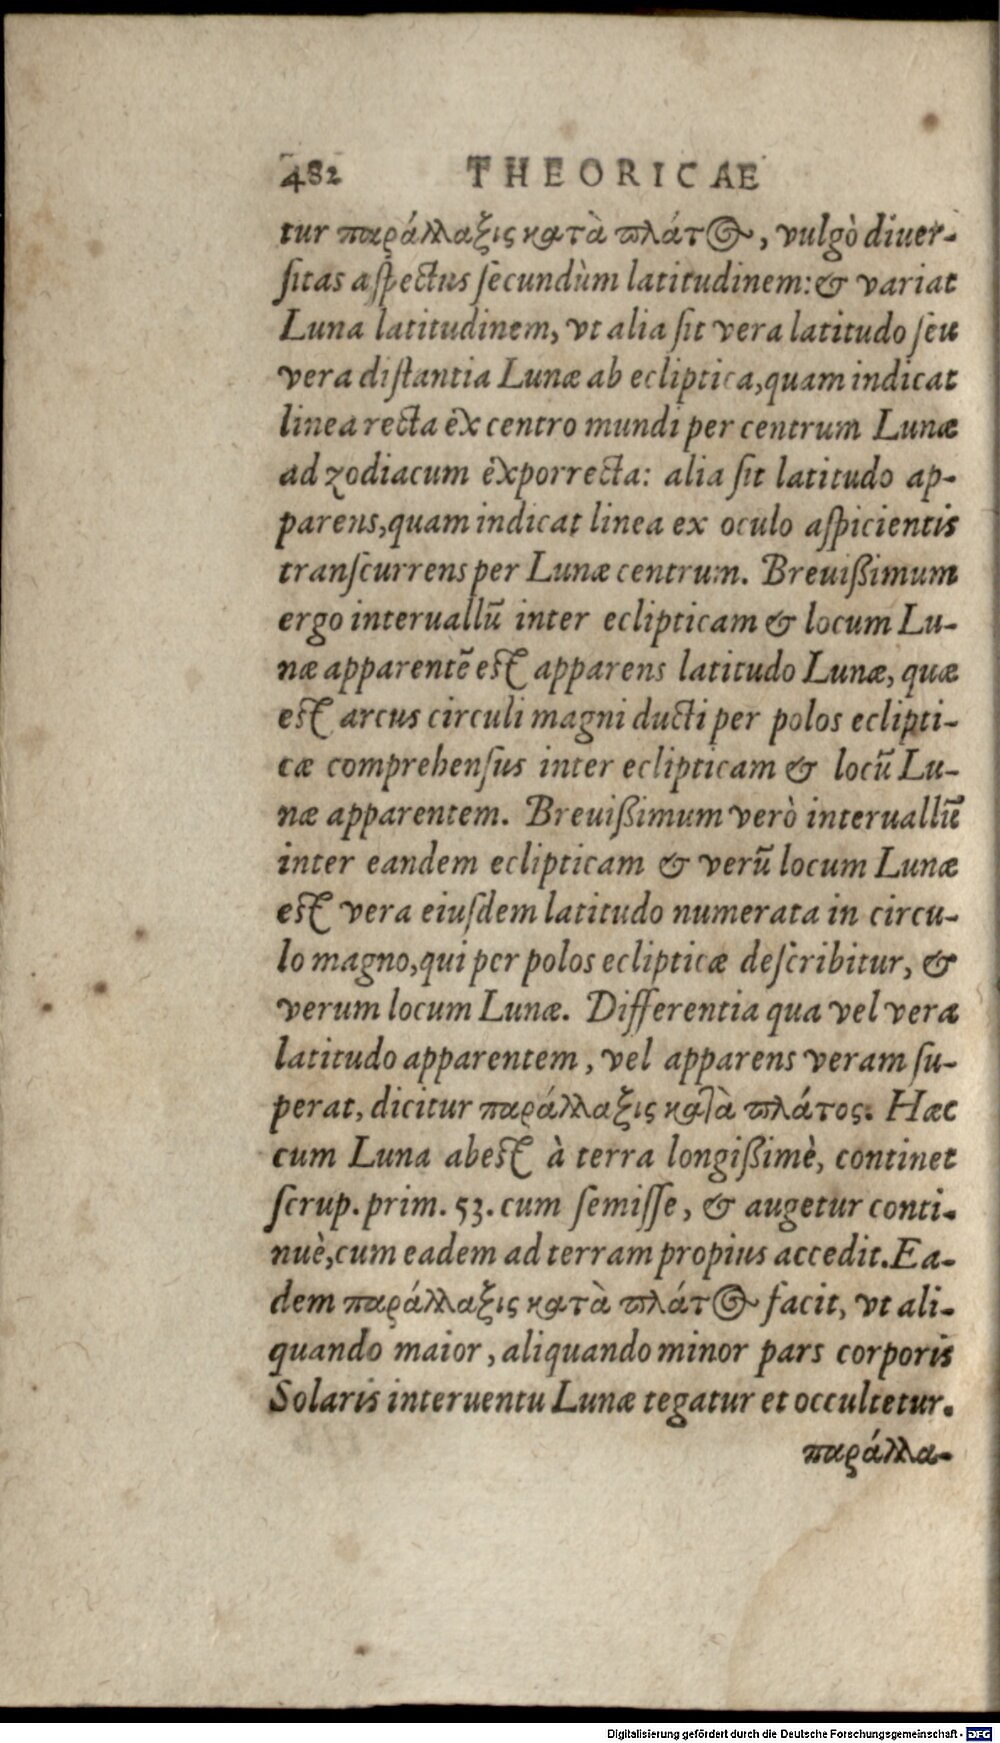 482 THEORICAE
tur παράλλαξις κατὰ πλάτος, vulgò diuer-
ſitas aſpectus ſecundùm latitudinem: & variat
Luna latitudinem, vt alia ſit vera latitudo ſeu
vera diſtantia Lunæ ab ecliptica, quam indicat
linea recta ex centro mundi per centrum Lunæ
ad zodiacum exporrecta: alia ſit latitudo ap-
parens, quam indicat linea ex oculo aſpicientis
tranſcurrens per Lunæ centrum. Breuißimum
ergo interuallū inter eclipticam & locum Lu-
næ apparentē eſt apparens latitudo Lunæ, quæ
eſt arcus circuli magni ducti per polos eclipti-
cæ comprehenſus inter eclipticam & locū Lu-
næ apparentem. Breuißimum verò interuallū
inter eandem eclipticam & verū locum Lunæ
eſt vera eiuſdem latitudo numerata in circu-
lo magno, qui per polos eclipticæ deſcribitur, &
verum locum Lunæ. Differentia qua vel vera
latitudo apparentem, vel apparens veram ſu-
perat, dicitur παράλλαξις κατὰ πλάτος. Hæc
cum Luna abeſt à terra longißimè, continet
ſcrup. prim. 53. cum ſemiſſe, & augetur conti-
nuè, cum eadem ad terram propius accedit. Ea-
dem παράλλαξις κατὰ πλάτος facit, vt ali-
quando maior, aliquando minor pars corporis
Solaris interuentu Lunæ tegatur et occultetur.
παράλλα-
Digitalisierung gefördert durch die Deutsche Forschungsgemeinschaft - DFG